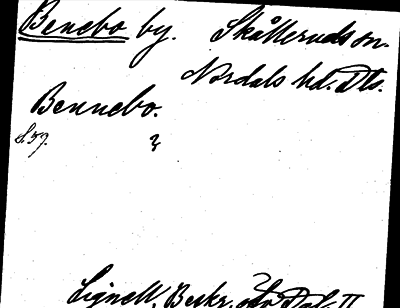 Benebo by. Skålleruds sn.
Nordals hd. Dls.
Bennebo.
S. 59. 2
Lignell, Beskr. Dal II